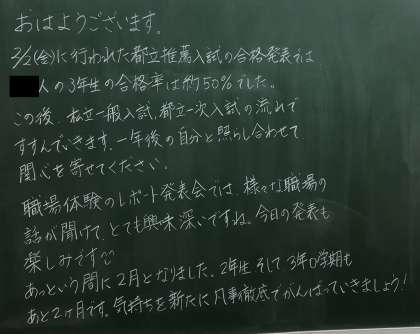 おはようございます。
2/2(金)に行われた都立推薦入試の合格発表では
人の3年生の合格率は約50%でした。
この後、私立一般入試、都立一次入試の流れで
すすんでいきます。一年後の自分と照らし合わせて
関心を寄せてください。
職場体験のレポート発表会では、様々な職場の
話が聞けて、とても興味深いですね。今日の発表も
楽しみです
あっという間に2月となりました。2年生そして3年0学期も
あと2ヶ月です。気持ちを新たに凡事徹底でがんばっていきましょう!